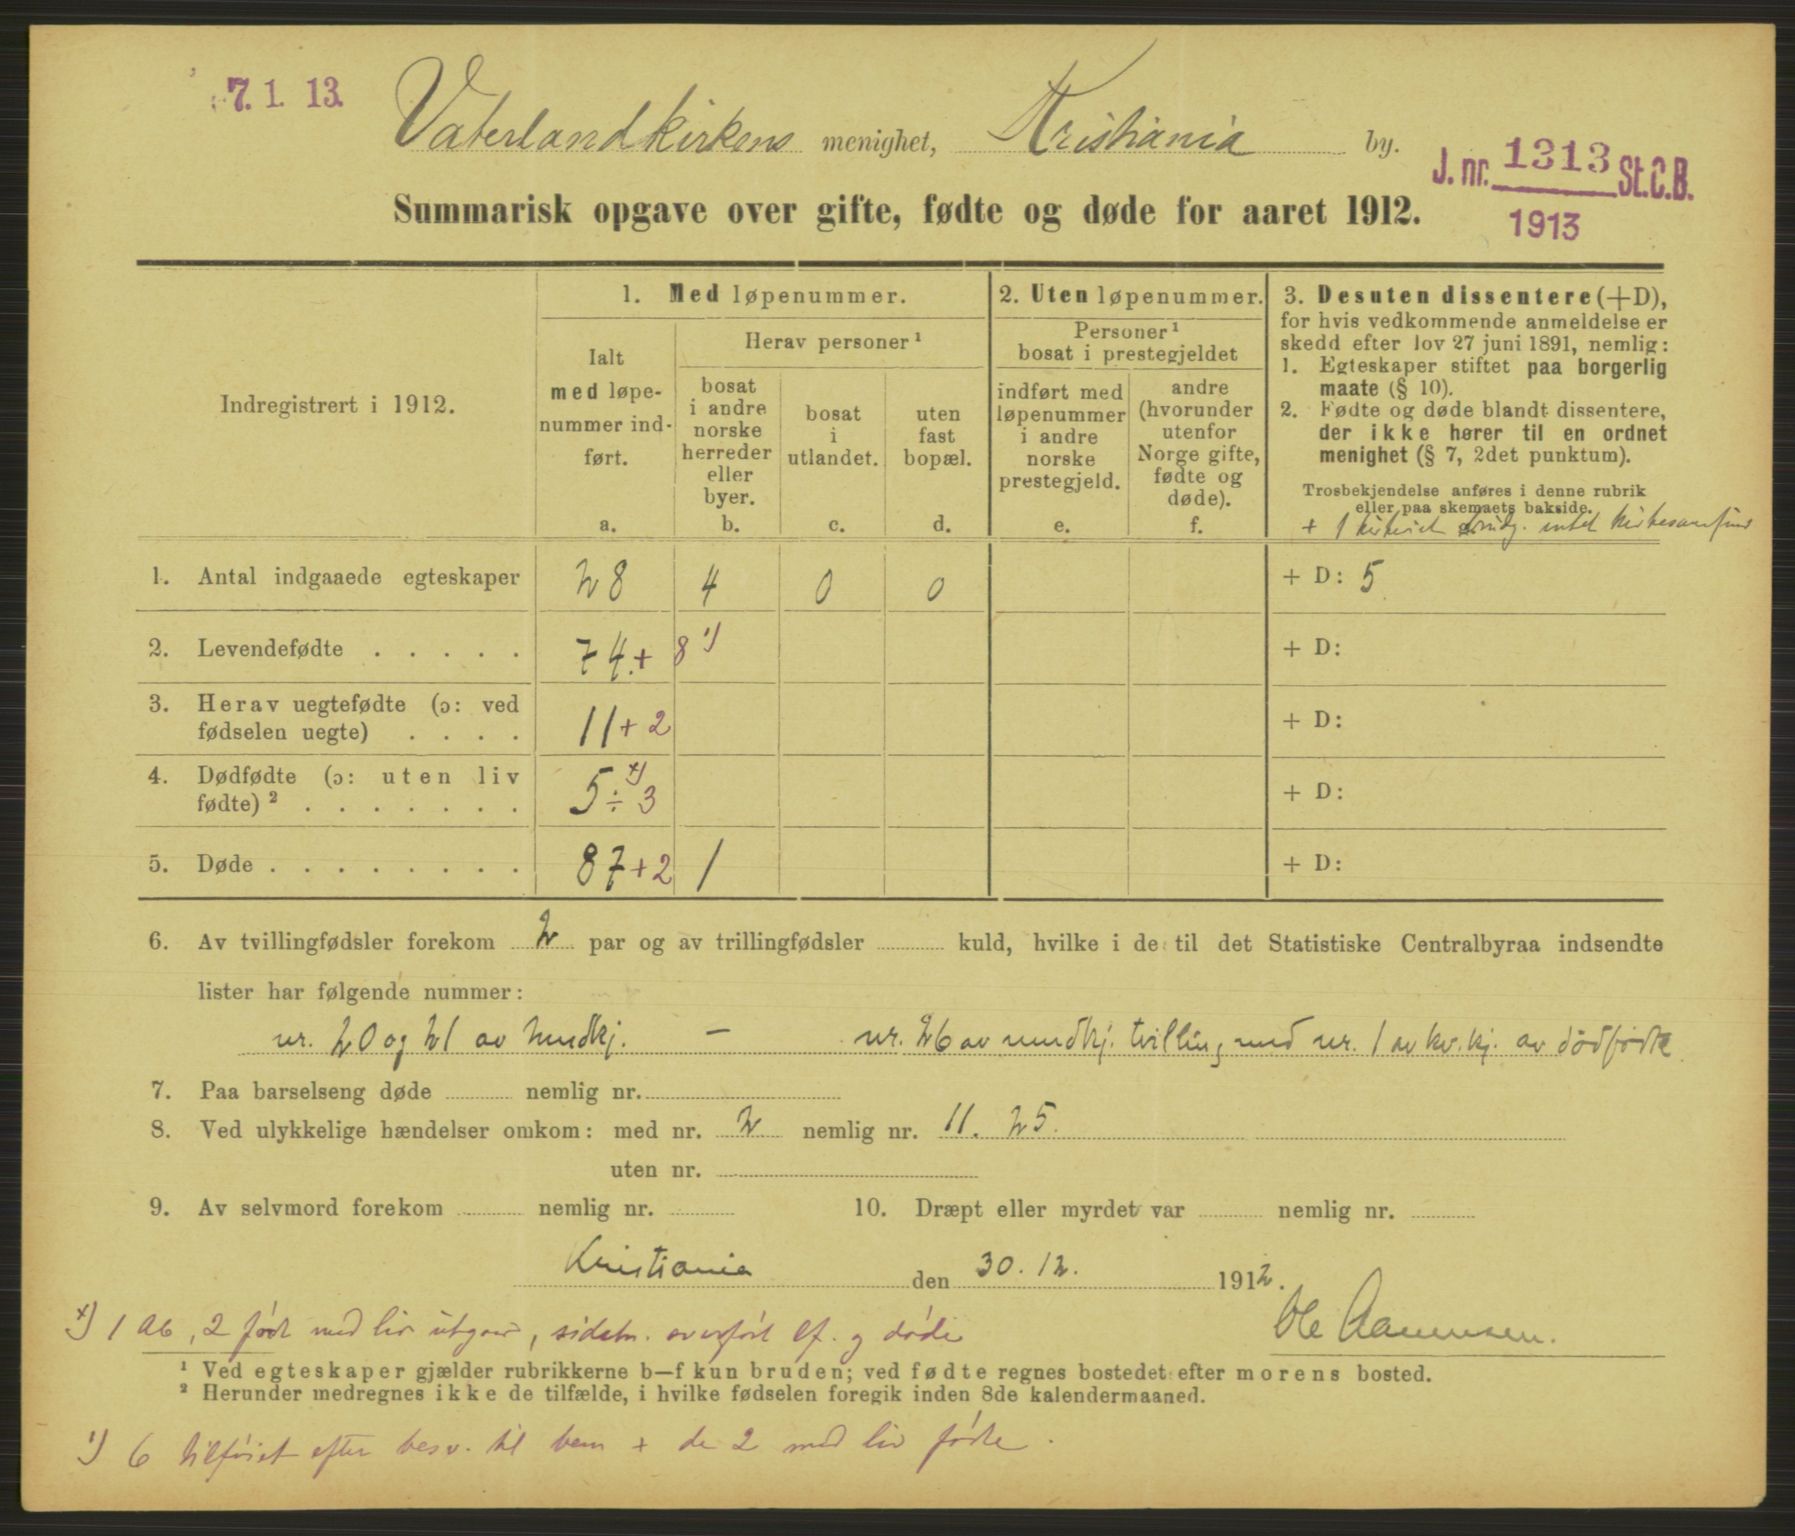 7. 1. 13.
Vaterlandkirkens menighet, Kristiania by.
J. nr. 1313 St.C.B.
1913
Summarisk opgave over gifte, fødte og døde for aaret 1912.
Indregistrert i 1912.
1. Med løpenummer.
Ialt med løpenummer indført.
a.
Herav personer ¹
bosat i andre norske herreder eller byer.
b.
bosat i utlandet.
c.
uten fast bopæl.
d.
2. Uten løpenummer.
Personer ¹ bosat i prestegjeldet
indført med løpenummer i andre norske prestegjeld.
e.
andre (hvorunder utenfor Norge gifte, fødte og døde).
f.
3. Desuten dissentere (+D),
for hvis vedkommende anmeldelse er
skedd efter lov 27 juni 1891, nemlig:
1. Egteskaper stiftet paa borgerlig
maate (§ 10).
2. Fødte og døde blandt dissentere,
der ikke hører til en ordnet
menighet (§ 7, 2det punktum).
Trosbekjendelse anføres i denne rubrik
eller paa skemaets bakside.
+ 1 intet kirkesamfund
1. Antal indgaaede egteskaper 28 4 0 0 + D: 5
2. Levendefødte . . . . . 74 + 8 ¹) + D:
3. Herav uegtefødte (ɔ: ved
fødselen uegte) . . . . 11 + 2 + D:
4. Dødfødte (ɔ: uten liv
fødte) ² . . . . . . . 5 ÷ 3 ˣ) + D:
5. Døde . . . . . . . . 87 + 2 1 + D:
6. Av tvillingfødsler forekom 2 par og av trillingfødsler kuld, hvilke i de til det Statistiske Centralbyraa indsendte
lister har følgende nummer:
nr. 20 og 21 av mndkj. — nr. 26 av mndkj. tvilling med nr. 1 av kv.kj. av dødfødte
7. Paa barselseng døde nemlig nr.
8. Ved ulykkelige hændelser omkom: med nr. 2 nemlig nr. 11. 25.
uten nr.
9. Av selvmord forekom nemlig nr. 10. Dræpt eller myrdet var nemlig nr.
Kristiania den 30. 12. 1912.
ˣ) 1 Ab, 2 født med liv utgaar, overført lf. og døde
Ole Aamunsen.
¹ Ved egteskaper gjælder rubrikkerne b—f kun bruden; ved fødte regnes bostedet efter morens bosted.
² Herunder medregnes ikke de tilfælde, i hvilke fødselen foregik inden 8de kalendermaaned.
¹) 6 tilføiet efter besv. til bem + de 2 med liv fødte.